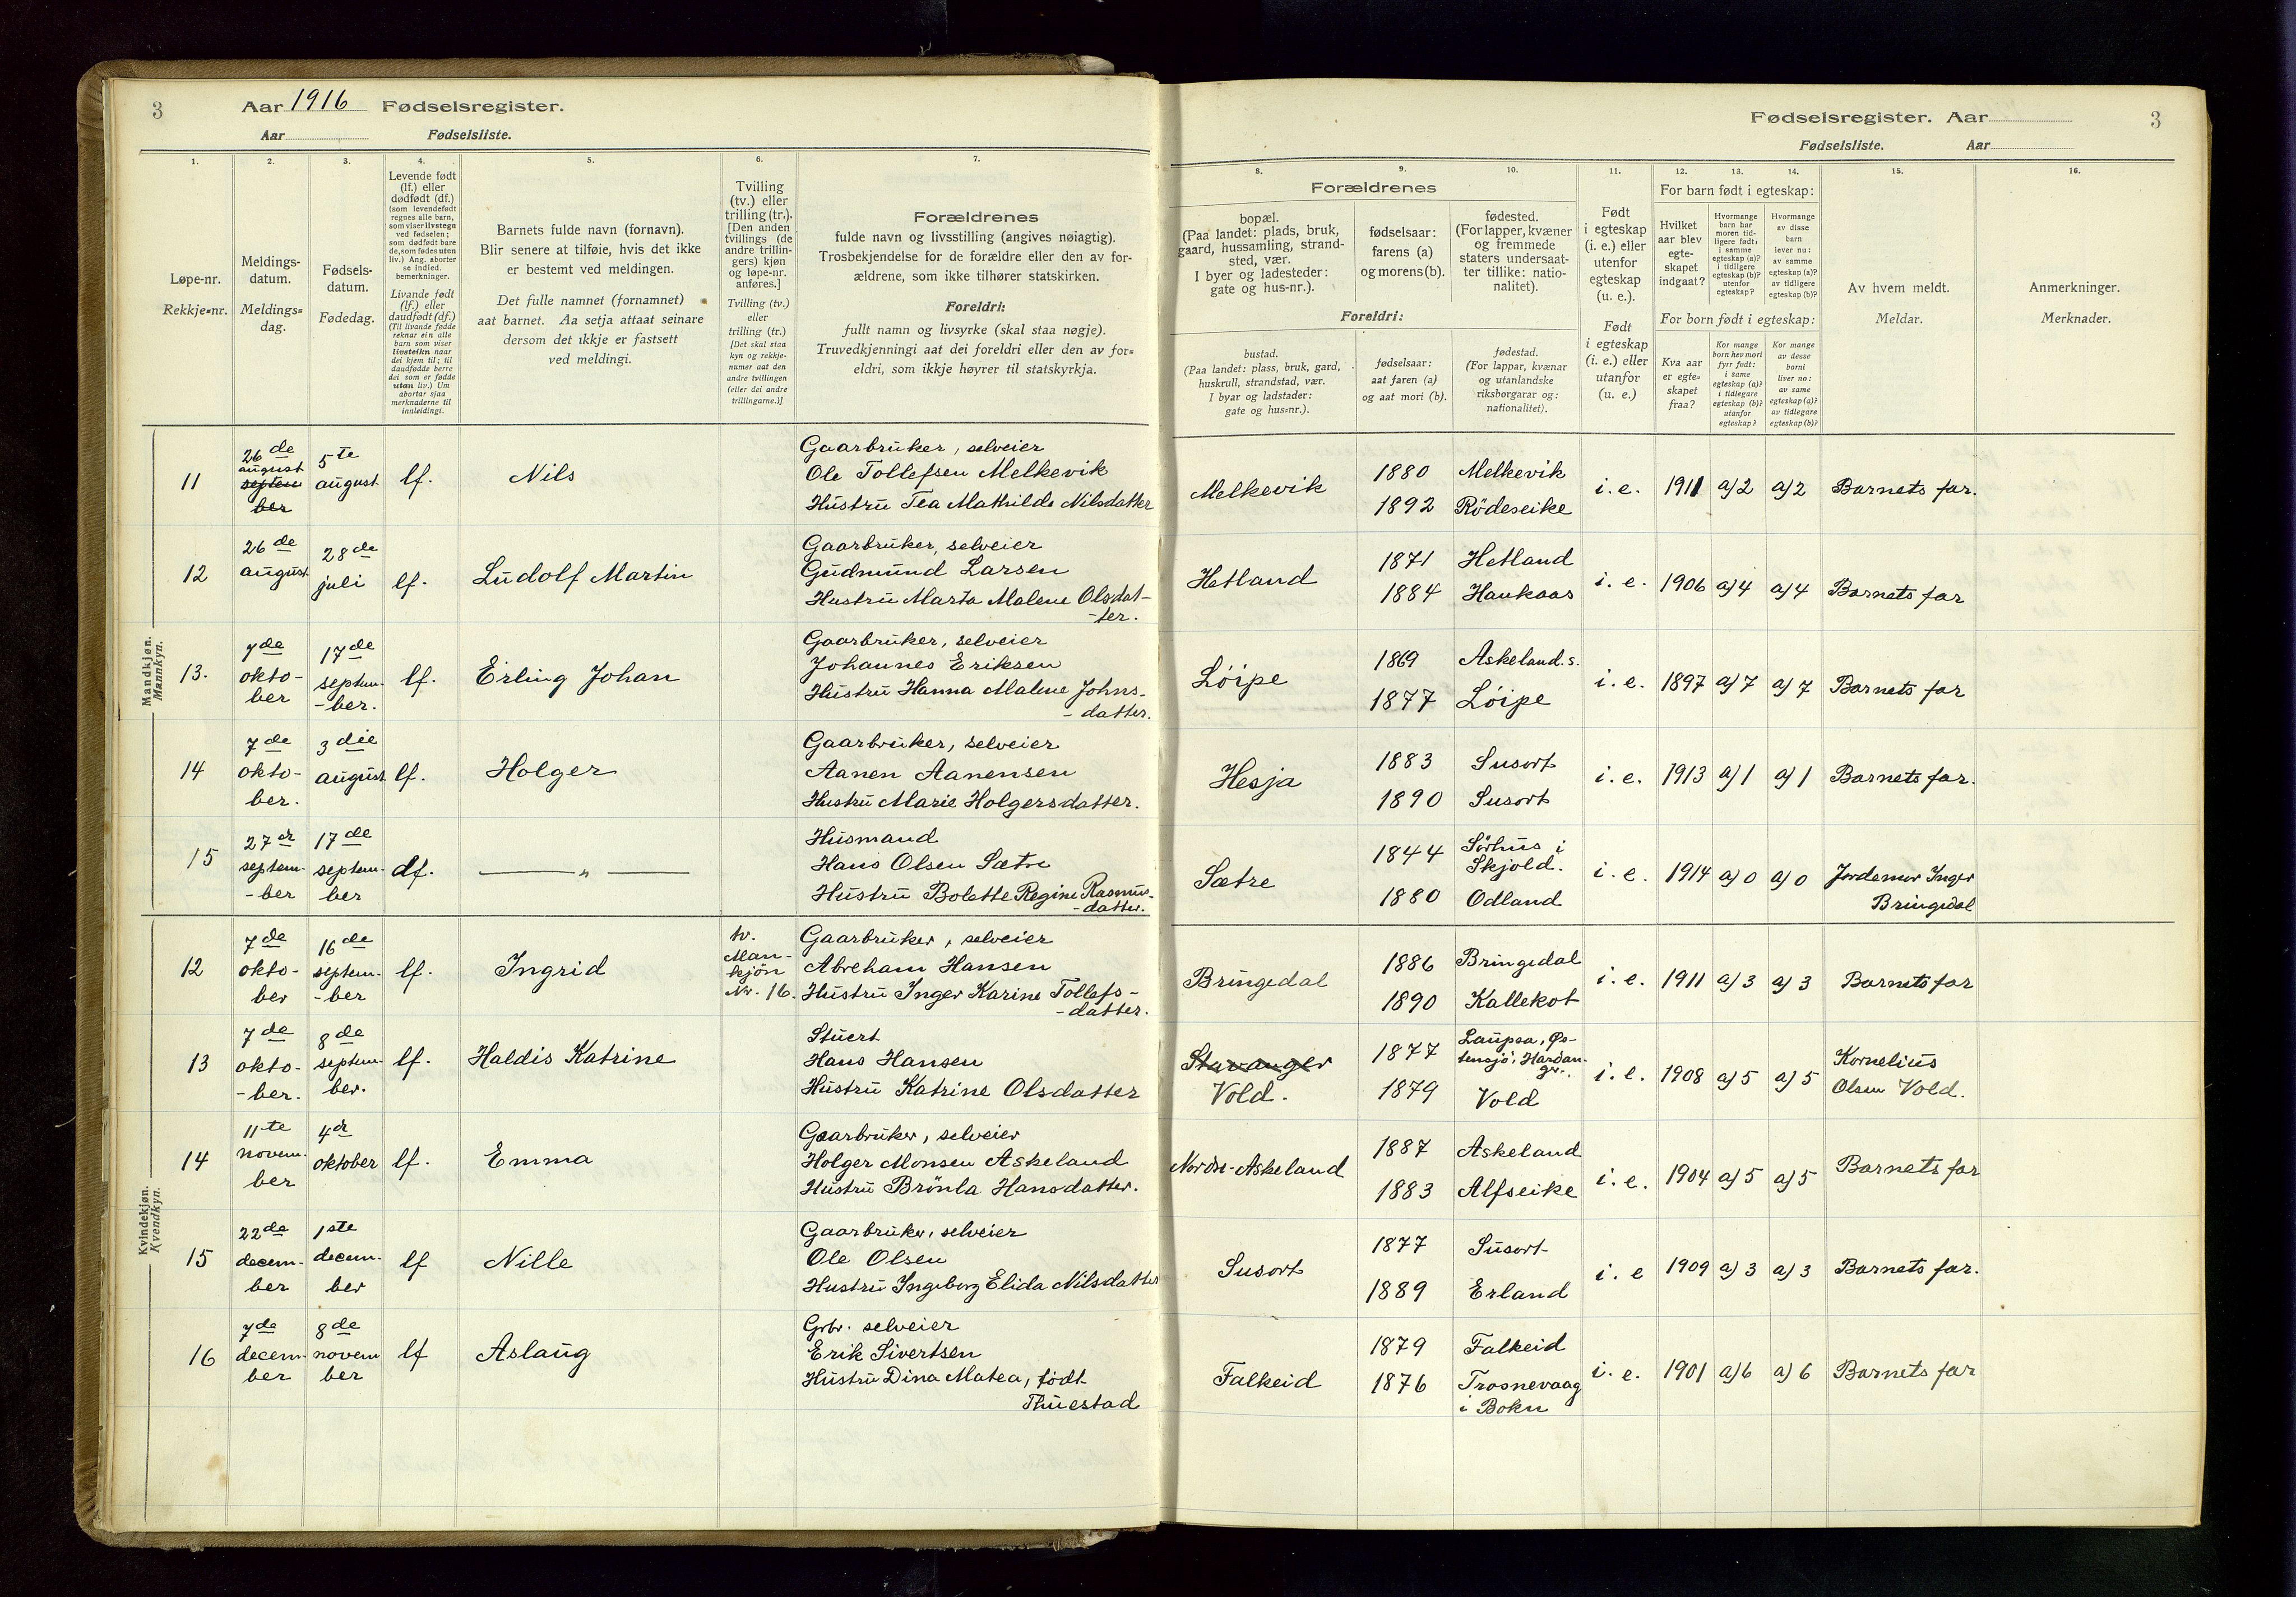 3
Aar 1916 Fødselsregister.
Aar Fødselsliste.
Fødselsregister. Aar
3
Fødselsliste. Aar
1.
Løpe-nr.
Rekkje=nr.
2.
Meldings-
datum.
Meldings=
dag.
3.
Fødsels-
datum.
Fødedag.
4.
Levende født
(lf.) eller
dødfødt (df.)
(som levendefødt
regnes alle barn,
som viser livstegn
ved fødselen;
som dødfødt bare
de, som fødes uten
liv.) Ang. aborter
se indled.
bemerkninger.
Livande født
(lf.) eller
daudfødt (df.)
(Til livande fødde
reknar ein alle
barn som viser
livsteikn naar
dei kjem til; til
daudfødde berre
dei som er fødde
utan liv.) Um
abortar sjaa
merknaderne til
innleidingi.
5.
Barnets fulde navn (fornavn).
Blir senere at tilføie, hvis det ikke
er bestemt ved meldingen.
Det fulle namnet (fornamnet)
aat barnet. Aa setja attaat seinare
dersom det ikkje er fastsett
ved meldingi.
6.
Tvilling
(tv.) eller
trilling (tr.).
[Den anden
tvillings (de
andre trillin-
gers) kjøn
og løpe-nr.
anføres.]
Tvilling (tv.)
eller
trilling (tr.)
[Det skal staa
kyn og rekkje-
numer aat den
andre tvillingen
(eller dei andre
trillingarne.)]
7.
Forældrenes
fulde navn og livsstilling (angives nøiagtig).
Trosbekjendelse for de forældre eller den av for-
ældrene, som ikke tilhører statskirken.
Foreldri:
fullt namn og livsyrke (skal staa nøgje).
Truvedkjenningi aat dei foreldri eller den av for=
eldri, som ikkje høyrer til statskyrkja.
8. 9. 10.
Forældrenes
bopæl.
(Paa landet: plads, bruk,
gaard, hussamling, strand-
sted, vær.
I byer og ladesteder:
gate og hus-nr.).
fødselsaar:
farens (a)
og morens (b).
fødested.
(For lapper, kvæner
og fremmede
staters undersaat-
ter tillike: natio-
nalitet).
Foreldri:
bustad.
(Paa landet: plass, bruk, gard,
huskrull, strandstad, vær.
I byar og ladstader:
gate og hus=nr.).
fødselsaar:
aat faren (a)
og aat mori (b).
fødestad.
(For lappar, kvænar
og utanlandske
riksborgarar og:
nationalitet).
11.
Født
i egteskap
(i. e.) eller
utenfor
egteskap
(u. e.).
Født
i egteskap
(i. e.) eller
utanfor
(u. e.)
12. 13. 14.
For barn født i egteskap:
Hvilket
aar blev
egte-
skapet
indgaat?
Hvormange
barn har
moren tid-
ligere født:
i samme
egteskap (a)?
i tidligere
egteskap (b)?
utenfor
egteskap?
Hvormange
av disse
barn
lever nu:
av samme
egteskap (a)?
av tidligere
egteskap (b)?
For born født i egteskap:
Kva aar
er egte=
skapet
fraa?
Kor mange
born hev mori
fyrr født:
i same
egteskap (a)?
i tidlegare
egteskap (b)?
utanfor
egteskap?
Kor mange
av desse
borni
liver no:
av same
egteskap (a)?
av tidlegare
egteskap (b)?
15.
Av hvem meldt.
Meldar.
16.
Anmerkninger.
Merknader.
Mandkjøn.
Mannkyn.
11
26de
august
septem
ber
5te
august
lf.
Nils
Gaarbruker, selveier
Ole Tollefsen Melkevik
Hustru Tea Mathilde Nilsdatter
Melkevik
1880 Melkevik
1892 Rödeseike
i. e. 1911 a) 2 a) 2 Barnets far.
12
26de
august
28de
juli
lf.
Ludolf Martin
Gaarbruker, selveier
Gudmund Larsen
Hustru Marta Malene Olsdat-
-ter.
Hetland
1871 Hetland
1884 Haukaas
i. e. 1906 a) 4 a) 4 Barnets far
13.
7de
okto-
ber
17de
septem-
-ber.
lf.
Erling Johan
Gaarbruker, selveier
Johannes Eriksen
Hustru Hanna Malene Johns-
-datter.
Löipe
1869 Askeland. s.
1877 Löipe
i. e. 1897 a) 7 a) 7 Barnets far
14
7de
okto-
ber.
3die
august
lf.
Holger
Gaarbruker, selveier
Aanen Aanensen
Hustru Marie Holgersdatter.
Hesja
1883 Susort
1890 Susort
i. e. 1913 a) 1 a) 1 Barnets far.
15
27de
septem-
-ber
17de
septem-
ber
df.
— „ —
Husmand
Hans Olsen Sætre
Hustru Bolette Regine Rasmus-
-datter.
Sætre
1844 Sörhus i
Skjold.
1880 Odland
i. e. 1914 a) 0 a) 0 Jordemor Inger
Bringedal
Kvindekjøn.
Kvendkyn.
12
7de
okto-
ber
16de
septem-
-ber
lf.
Ingrid
tv.
Man-
kjön
Nr. 16.
Gaarbruker, selveier
Abreham Hansen
Hustru Inger Karine Tollefs-
-datter.
Bringedal
1886 Bringedal
1890 Kallekot
i. e. 1911 a) 3 a) 3 Barnets far
13
7de
okto-
-ber.
8de
septem-
ber.
lf.
Haldis Katrine
Stuert
Hans Hansen
Hustru Katrine Olsdatter
Stavanger
Vold.
1877 Laupsa, Øs-
tensjö, Hardan-
ger.
1879 Vold
i. e. 1908 a) 5 a) 5 Kornelius
Olsen Vold.
14
11te
novem-
ber
4de
oktober
lf.
Emma
Gaarbruker, selveier
Holger Monsen Askeland
Hustru Brönla Hansdatter.
Nordre-Askeland
1887 Askeland
1883 Alfseike
i. e. 1904 a) 5 a) 5 Barnets far
15
22de
decem-
ber
1ste
decem-
ber
lf
Nille
Gaarbruker, selveier
Ole Olsen
Hustru Ingeborg Elida Nilsdatter
Susort
1877 Susort
1889 Erland
i. e 1909 a) 3 a) 3 Barnets far.
16
7de
decem-
ber
8de
novem
ber
lf
Aslaug
Grbr. selveier
Erik Sivertsen
Hustru Dina Matea, födt
Thuestad
Falkeid
1879 Falkeid
1876 Trosnevaag
i Bokn
i. e. 1901 a) 6 a) 6 Barnets far